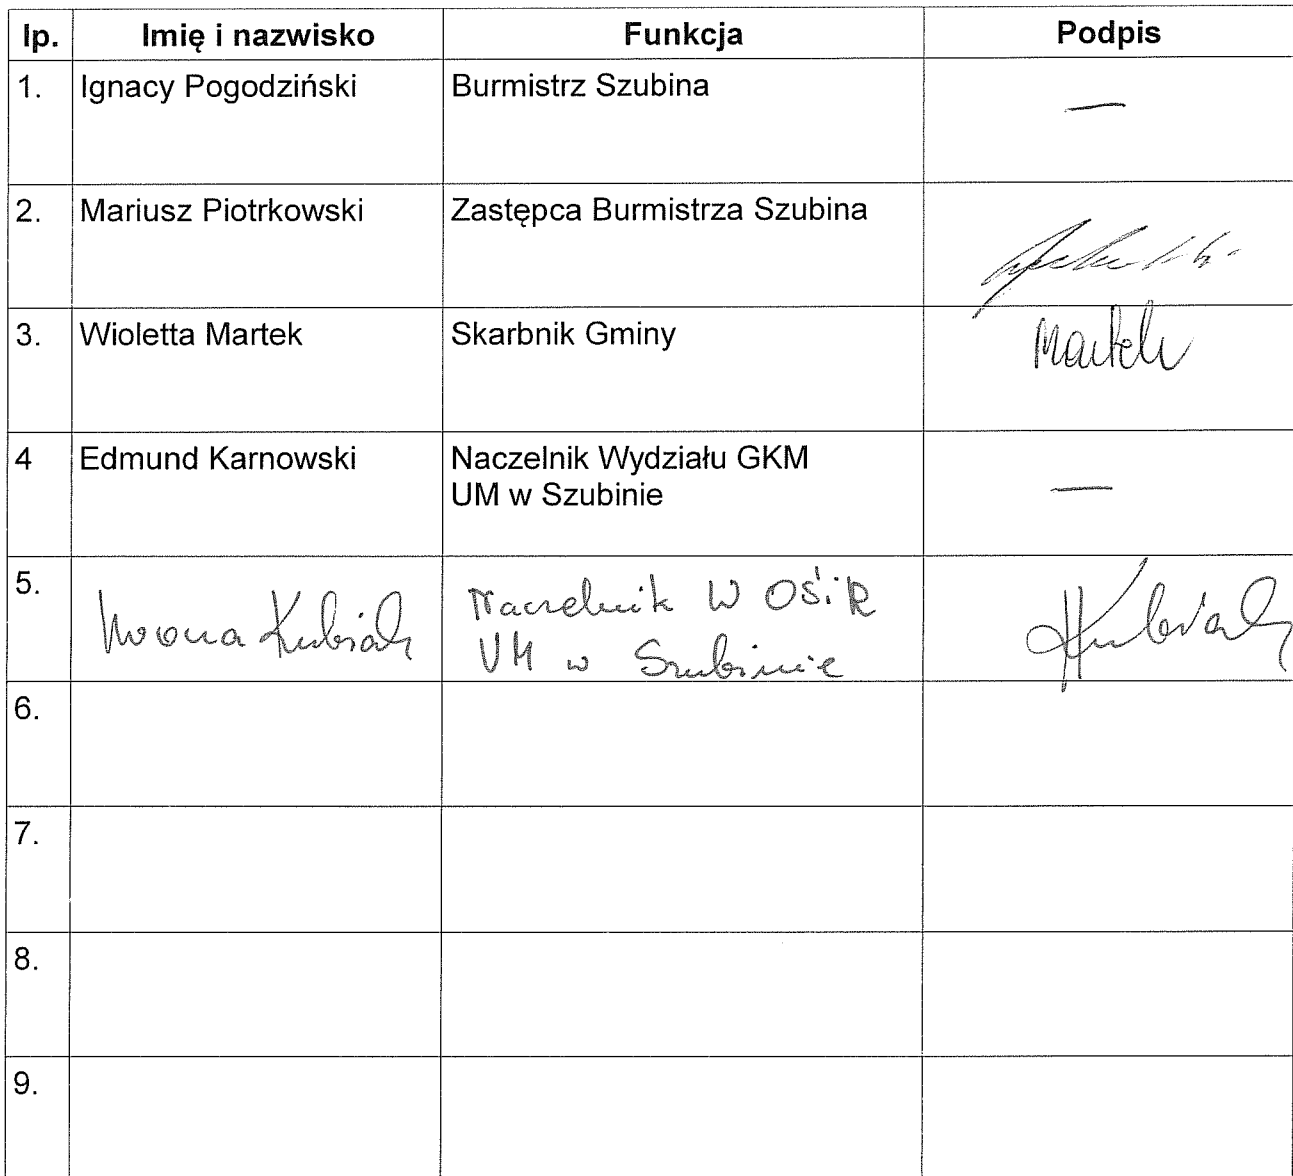 lp. Imię i nazwisko Funkcja Podpis
1. Ignacy Pogodziński Burmistrz Szubina —
2. Mariusz Piotrkowski Zastępca Burmistrza Szubina
3. Wioletta Martek Skarbnik Gminy Martek
4 Edmund Karnowski Naczelnik Wydziału GKM
UM w Szubinie —
5. Iwona Kubiak Naczelnik W OŚiR
UM w Szubinie Kubiak
6.
7.
8.
9.